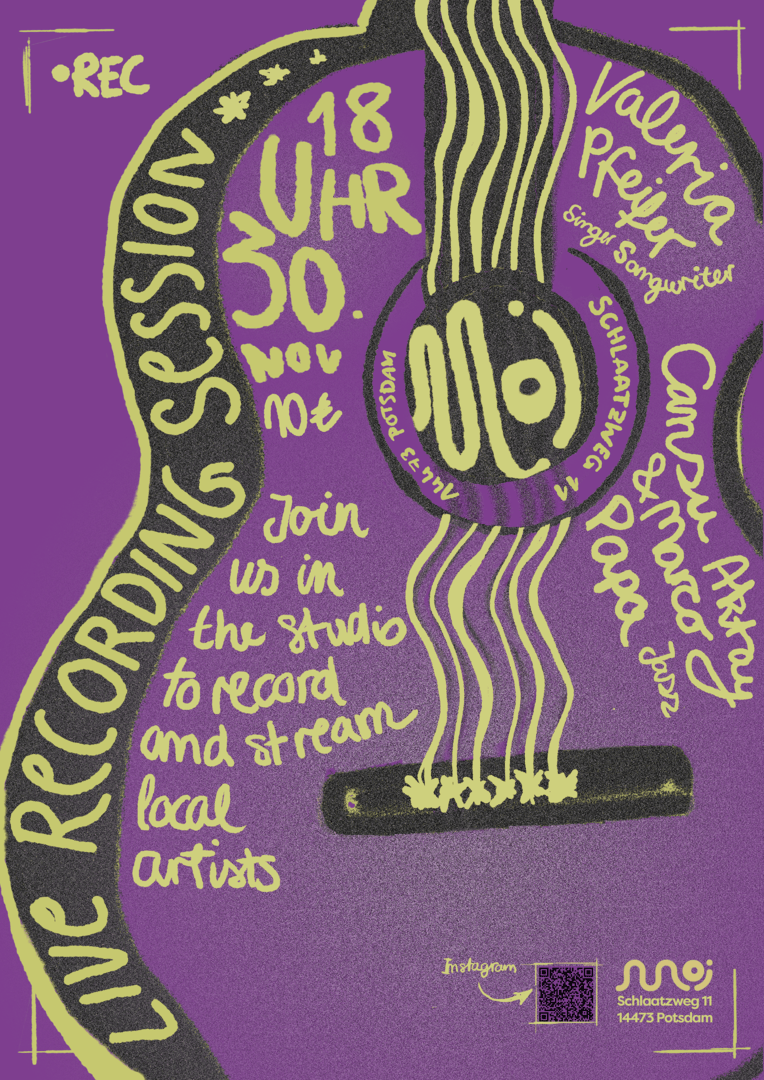 •REC
LIVE RECORDING SESSION
18
UHR
30.
NOV
10€
Valeria
Pfeifer
Singer Songwriter
Moj
SCHLAATZWEG 11
14473 POTSDAM
Cansu Aktay
& Marco
Papa
Jazz
Join
us in
the studio
to record
and stream
local
artists
Instagram
moj
Schlaatzweg 11
14473 Potsdam